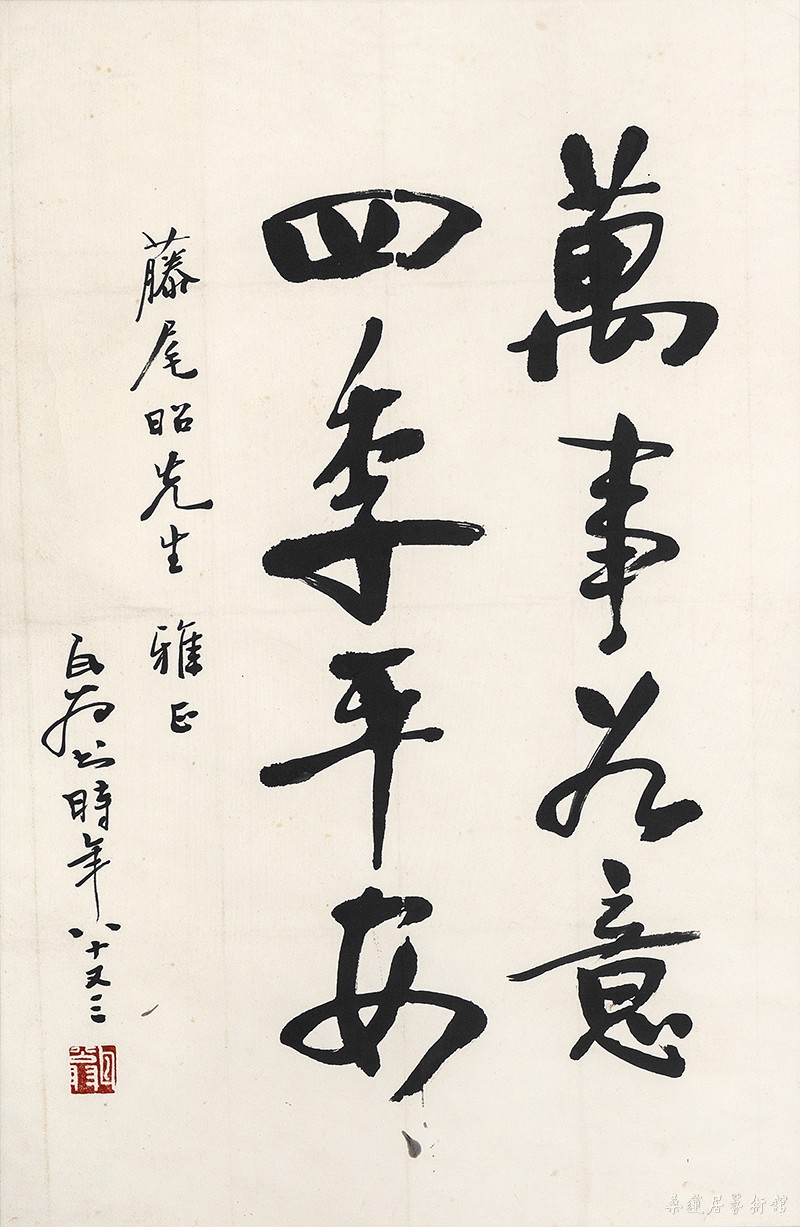 萬事如意
四季平安
藤尾昭先生 雅正
书時年八十又三
桑蓮居藝術館